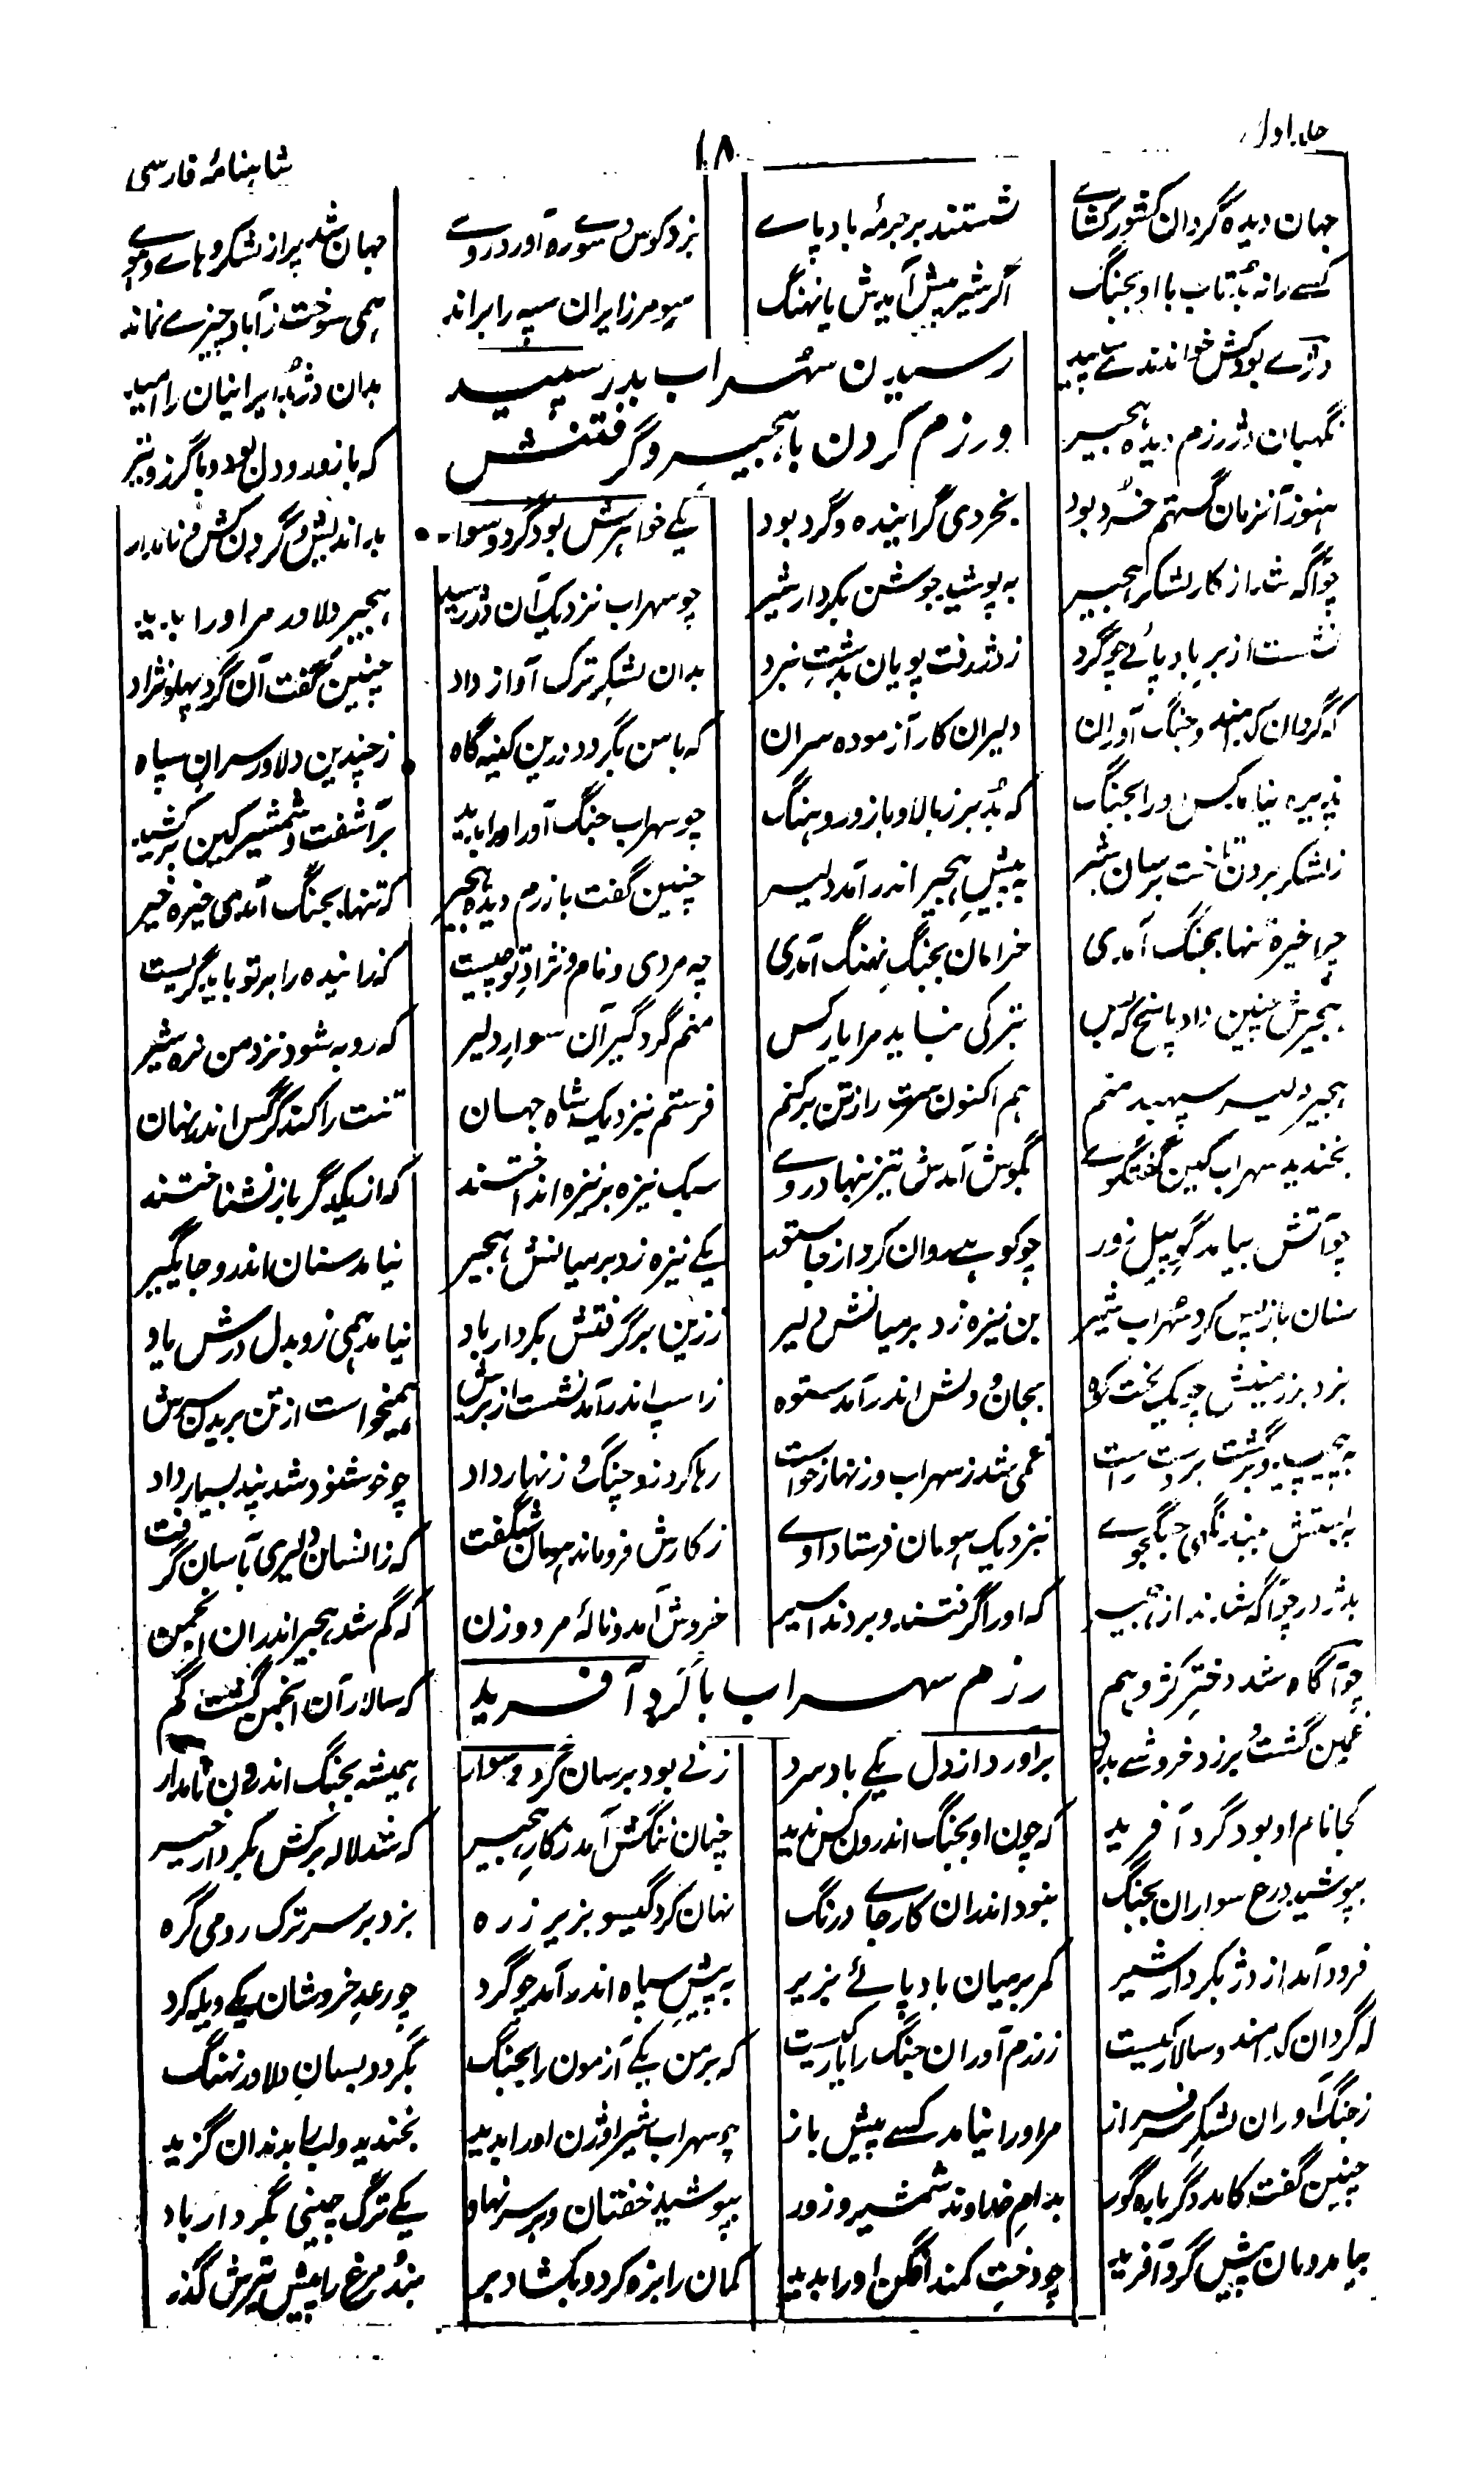 جلد اول
۱۰۸
شاہنامۂ فارسی
جهان دیده گردان کشور کشاے نشستند بر جرمهٔ بادپاے بزد کوس سورہ آورد روے جهان شد پر از لشکر و هاے و ہوے
کسے را نه بُد تاب با او بجنگ اگر شیر پیش آیدش یا نهنگ سوے مرز ایران سپه را براند همی سوخت ز آباد چیزے نماند
رسیدن سُهراب بدز سپید
ورزم کردن با هجیر و گرفتنش
دژے بود کش خواندندے سپید بدان دژ بُد ایرانیان را امید
نگهبان دژ رزم دیده هجیر که با زور و دل بود و با گرز و تیر
هنوز آنزمان گستهم خُرد بود بخردی گراینده و گرد بود یکے خواهرش بود گرد و سوار بداندیش و گردن کش و نامدار
چو آگه شد از کار لشکر هجیر بپوشید جوشن بکردار شیر چو سهراب نزدیک آن دژ رسید هجیر دلاور مر او را بدید
نشست از بر بادپائے چو گرد ز دژ رفت پویان بدشت نبرد بدان لشکر ترک آواز داد چنین گفت آن گرد پهلو نژاد
که گردان کدامند و جنگ آوران دلیران کارآزموده سران که با من بگردد درین کینه گاه ز چندین دلاور سران سپاه
پذیره نیامد کس او را بجنگ که بُد برز بالا و با زور و هنگ چو سهراب جنگ آور او را بدید برآشفت و شمشیر کین برکشید
ز لشکر برون تاخت برسان شیر به پیش هجیر اندر آمد دلیر چنین گفت با رزم دیده هجیر که تنها بجنگ آمدی خیره خیر
چرا خیره تنها بجنگ آمدی خرامان بجنگِ نهنگ آمدی چه مردی و نام و نژادِ تو چیست که زاینده را بر تو باید گریست
هجیرش چنین داد پاسخ که بس بترکی نباید مرا یار کس منم گرد گیر آن سوارِ دلیر که روبه شود نزد من نره شیر
هجیر دلیر سپهبد منم هم اکنون سرت را ز تن برکنم فرستم بنزدیک شاه جهان تنت را کند کرگس اندر نهان
بخندید سهراب کین گفتگوے بگوش آمدش تیز بنهاد روے سبک نیزه بر نیزه انداختند که از یکدگر باز نشناختند
چو آتش بیامد گوِ پیل زور چو کوهے روان کرد از جا ستور یکے نیزه زد بر میانش هجیر نیامد سنان اندر و جایگیر
سنان باز پس کرد سُهراب شیر بن نیزه زد بر میانش دلیر ز زین برگرفتش بکردار باد نیامد همی زو بدل درش یاد
بزد بر زمینش چو یک لخت کوه بجان و دلش اندر آمد ستوه ز اسپ اندر آمد نشست از برش همیخواست از تن بریدن سرش
به پیچید و برگشت بر دست راست غمی شد ز سهراب و زنهار خواست رها کرد زو چنگ و زنهار داد چو خوشنود شد پند بسیار داد
به بستش ببند آنگهی جنگجوے بنزدیک هومان فرستاد اوے ز کارش فرو ماند هومان شگفت که زانسان دلیری آسان گرفت
بدژ در چو آگه شدند از هجیر که او را گرفتند و بردند اسیر خروش آمد و نالۂ مرد و زن که گم شد هجیر اندران انجمن
رزم سهراب با گرد آفرید
چو آگاه شد دختر گژدهم که سالار آن انجمن گشت گم
غمین گشت و برزد خروشے بدرد برآورد از دل یکے باد سرد زنے بود برسان گرد و سوار همیشه بجنگ اندرون نامدار
کجا نام او بود گرد آفرید که چون او بجنگ اندرون کس ندید چنان ننگش آمد ز کارِ هجیر که شد لاله برگش بکردار خیر
بپوشید درع سواران بجنگ نبود اندران کار جاے درنگ نهان کرد گیسو بزیر زره بزد بر سر ترک رومی گره
فرود آمد از دژ بکردار شیر کمر بر میان بادپائے بزیر به پیشِ سپاه اندر آمد چو گرد چو رعدِ خروشان یکے ویله کرد
که گردان کدامند و سالار کیست ز رزم آوران جنگ را یار کیست که بر من یکے آزمون را بجنگ بگردد بسانِ دلاور نهنگ
ز جنگ آوران لشکر سرفراز مر او را نیامد کسے پیش باز چو سهراب شیر اوژن او را بدید بخندید و لب را بدندان گزید
چنین گفت کامد دگر باره گور بدامِ خداوند شمشیر و زور بپوشید خفتان و بر سر نهاد یکے ترگ چینی بکردار باد
بیامد دمان پیش گرد آفرید چو دختِ کمند افگن او را بدید کمان را بزه کرد و بکشاد بر نبُد مرغ را پیش تیرش گذر